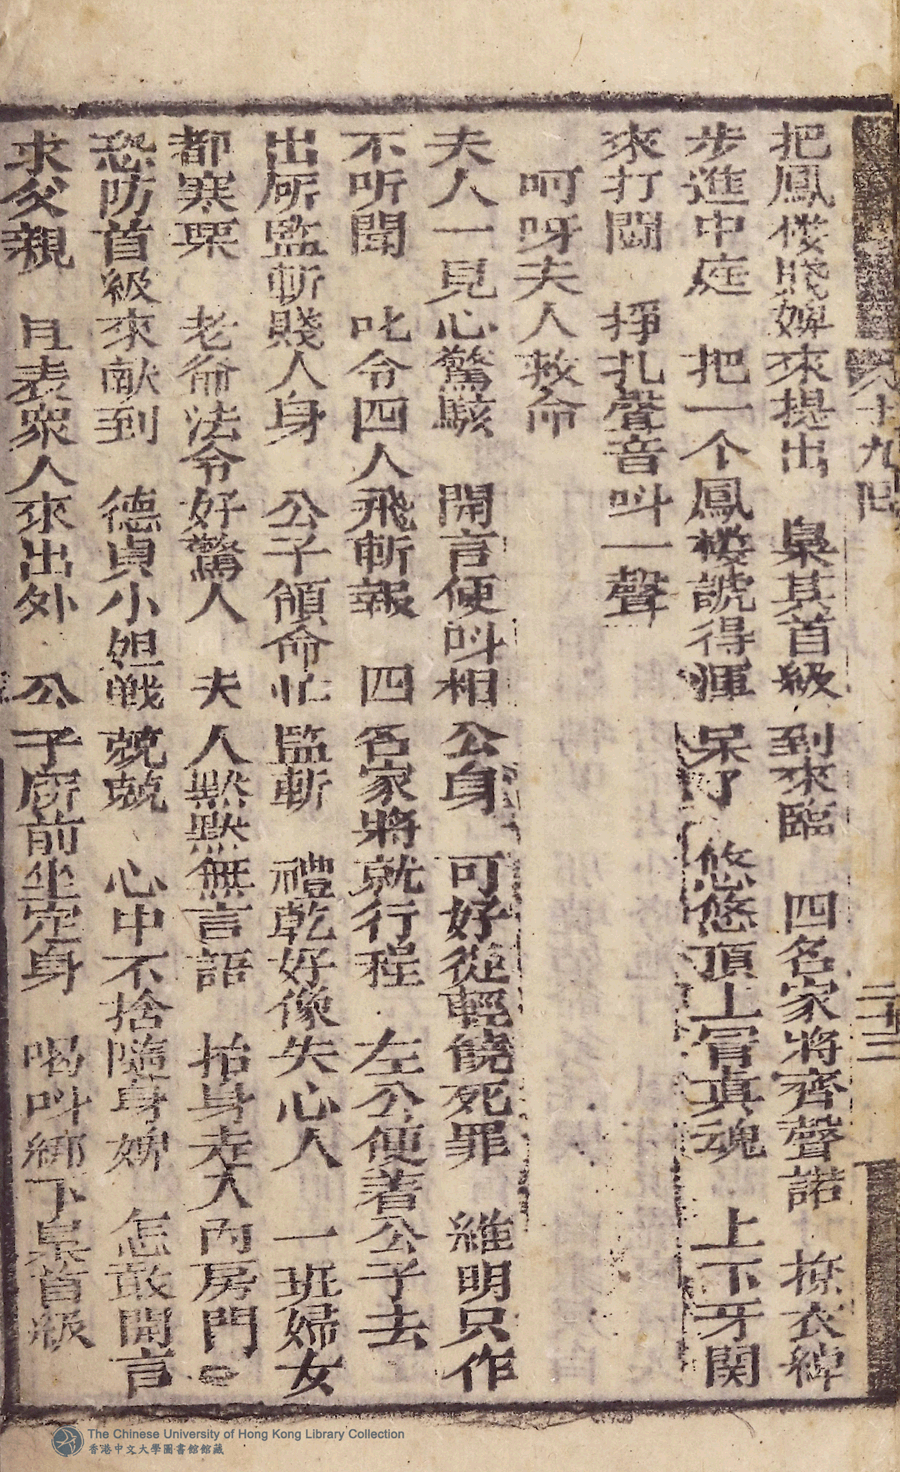 第十九回
二十三
把鳳楼賤婢來提出 梟其首級到來臨 四名家將齊聲諾 撩衣綽
步進中庭 把一个鳳樓諕得渾呆了 悠悠頂上冒真魂 上下牙関
來打閗 掙扎聲音呌一聲
呵呀夫人救命
夫人一見心驚駭 開言便呌相公身 可好從輕饒死罪 維明只作
不听聞 叱令四人飛斬報 四名家將就行程 左公便著公子去
出所監斬賤人身 公子領命忙監斬 禮乾好像失心人 一班婦女
都寒栗 老爺法令好驚人 夫人黙黙無言語 抬身走入內房門
恐防首級來献到 德貞小姐戦兢兢 心中不捨隨身婢 怎敢開言
求父親 且表衆人來出外 公子㕔前坐定身 喝呌綁下梟首級
The Chinese University of Hong Kong Library Collection
香港中文大學圖書館館藏